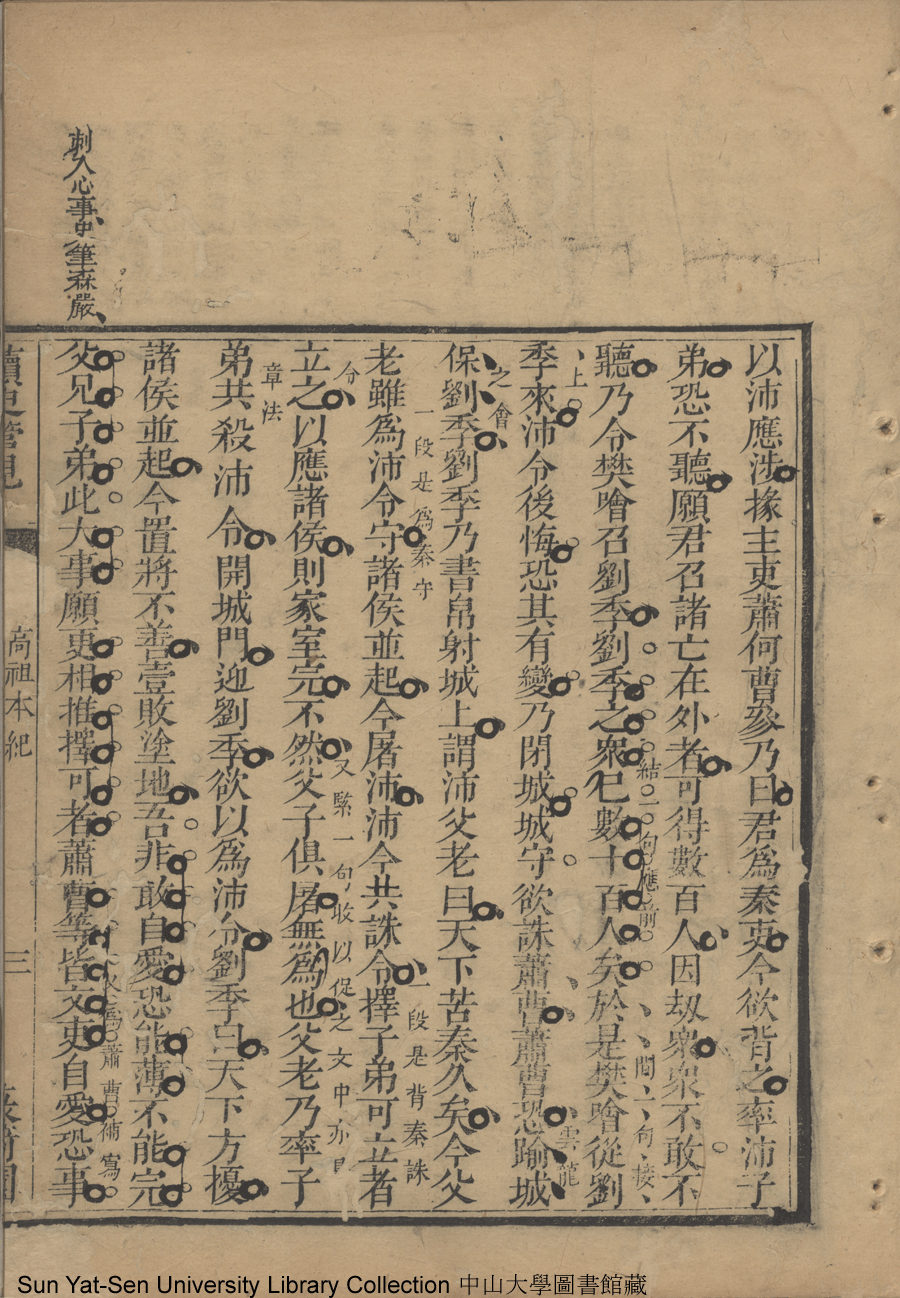 刺入心事史筆森嚴
以沛應涉掾主吏蕭何曹參乃曰君爲秦吏今欲背之率沛子
弟恐不聽願君召諸亡在外者可得數百人因劫衆衆不敢不
聽乃令樊噲召劉季劉季之衆已數十百人矣於是樊噲從劉
結一句應前
間上句接
上
季來沛令後悔恐其有變乃閉城城守欲誅蕭曹蕭曹恐踰城
雲龍
之會
保劉季劉季乃書帛射城上謂沛父老曰天下苦秦久矣今父
一段是爲秦守
一段是背秦誅
老雖爲沛令守諸侯並起今屠沛沛今共誅令擇子弟可立者
分
立之以應諸侯則家室完不然父子俱屠無爲也父老乃率子
又緊一句收以促之文中亦
章法
弟共殺沛令開城門迎劉季欲以爲沛令劉季曰天下方擾
諸侯並起今置將不善壹敗塗地吾非敢自愛恐能薄不能完
蕭曹補寫
父兄子弟此大事願更相推擇可者蕭曹等皆文吏自愛恐事
讀史管見
高祖本紀
三